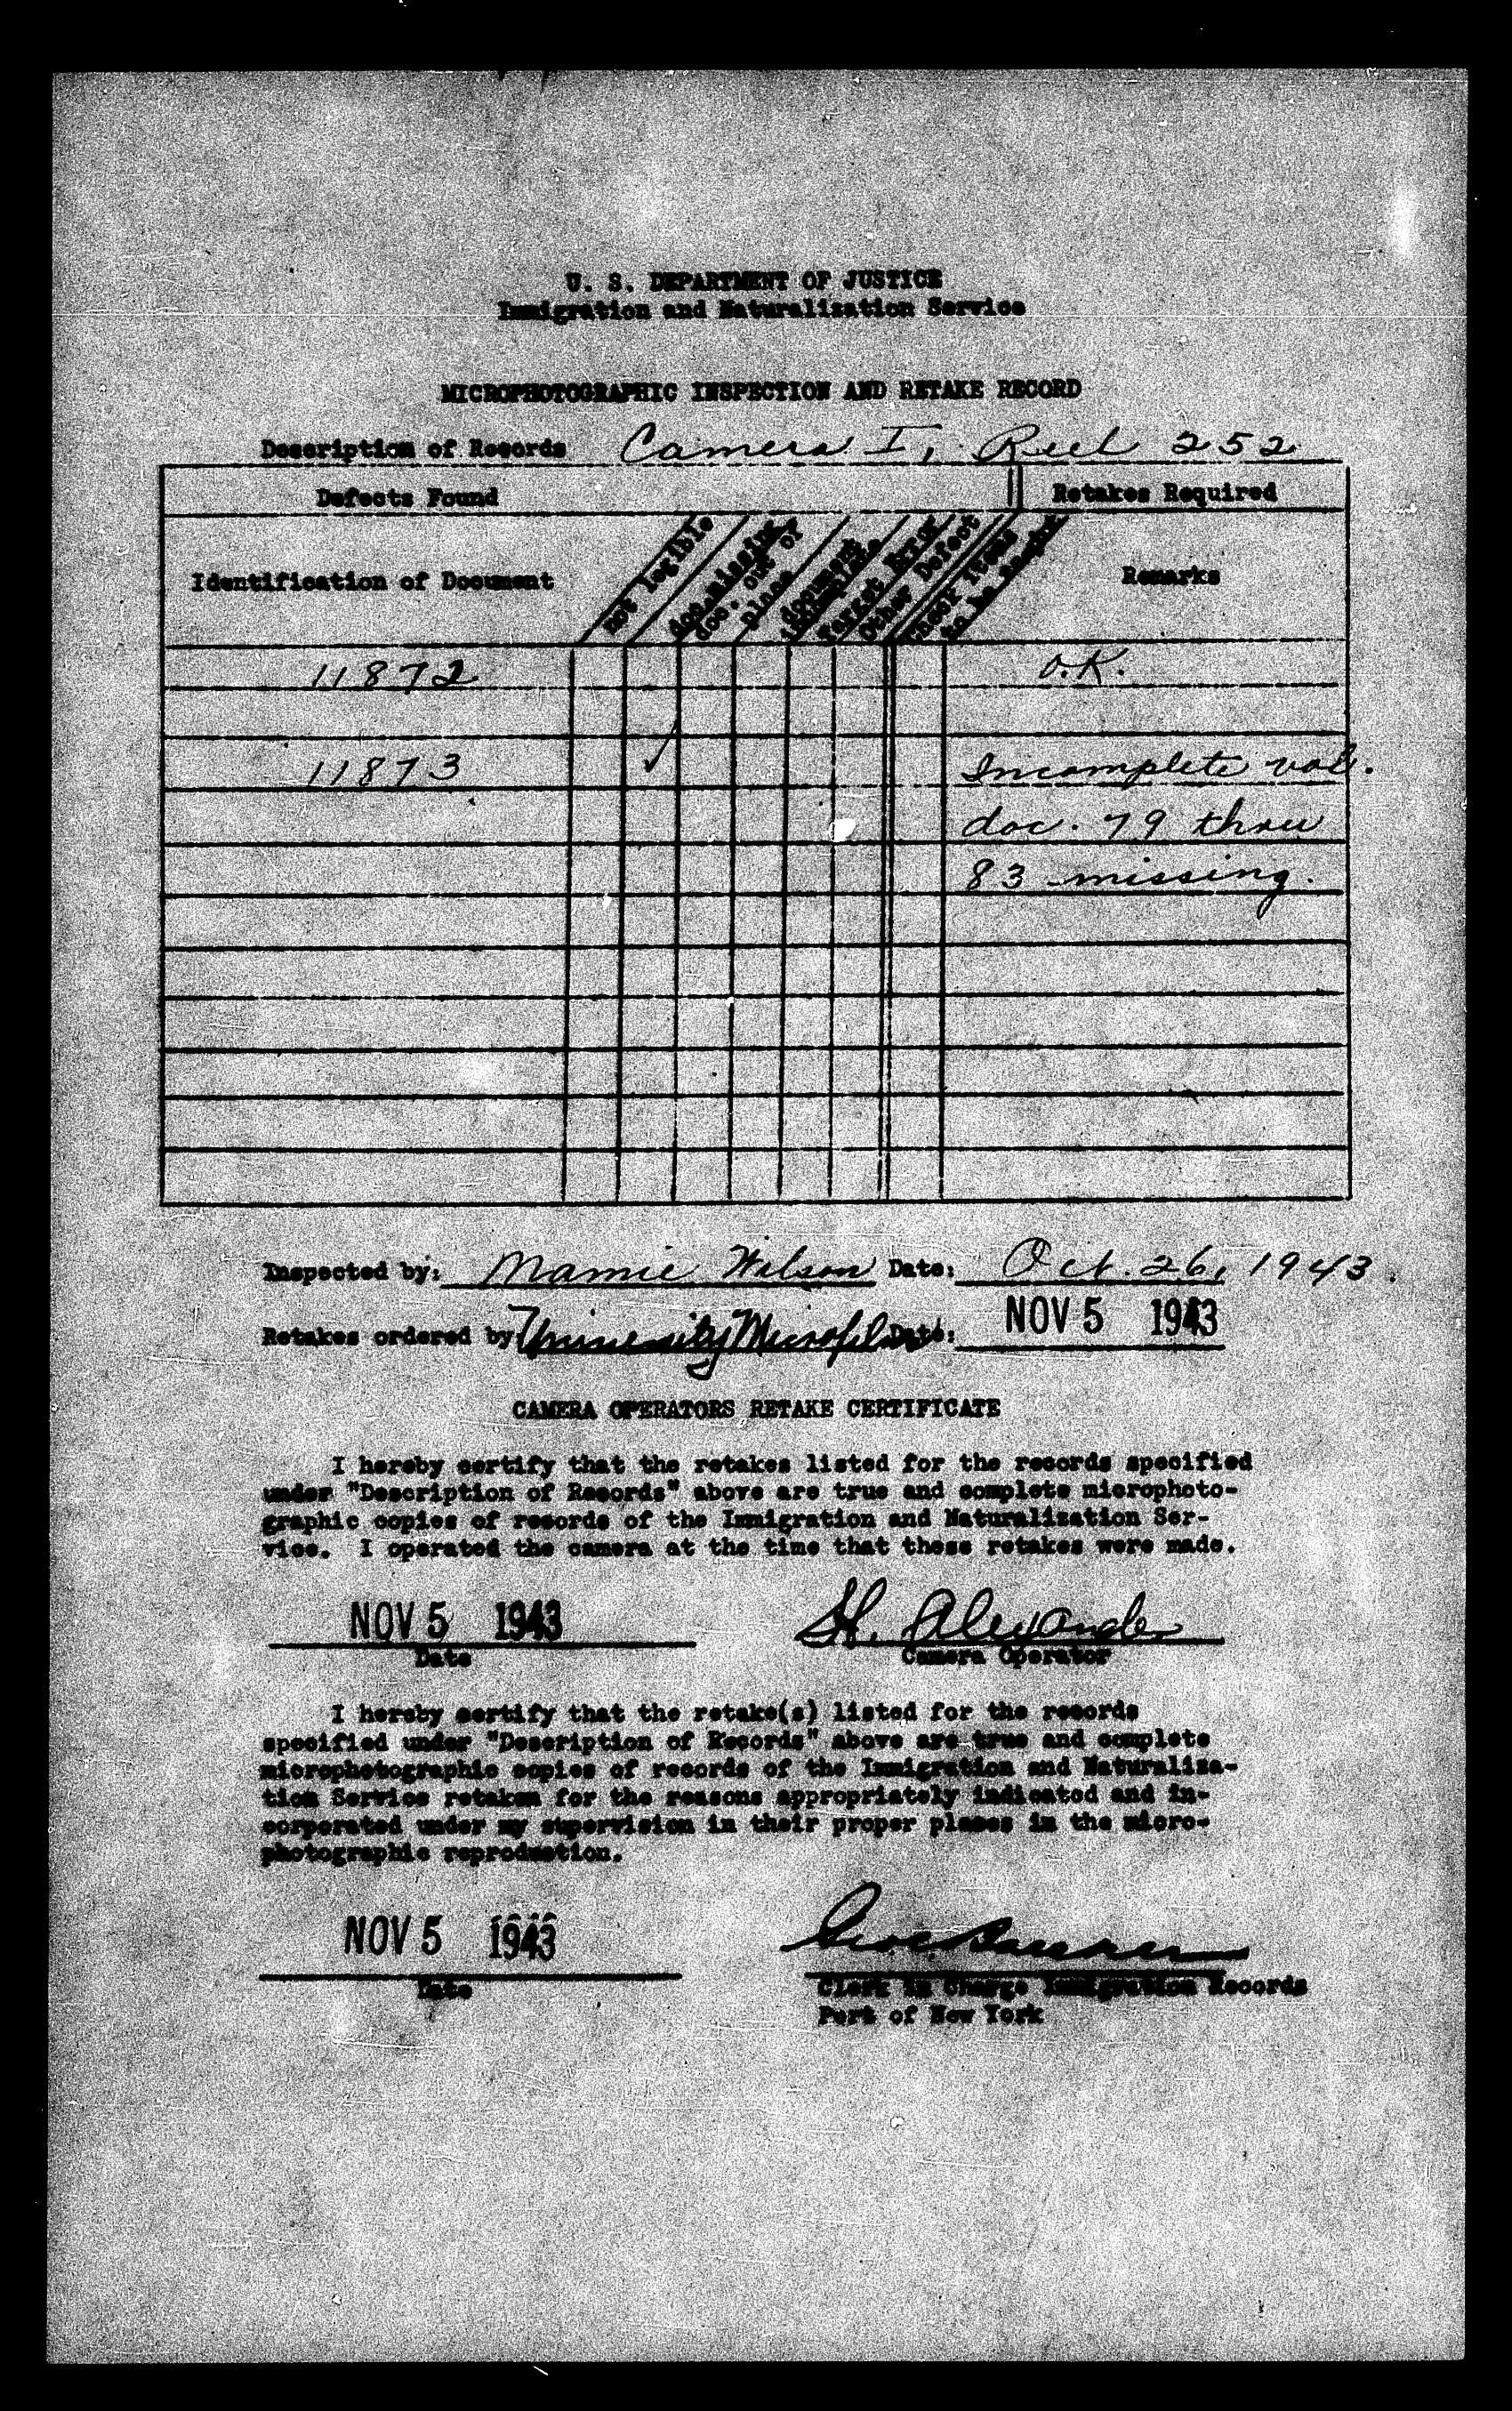 U. S. DEPARTMENT OF JUSTICE
Immigration and Naturalization Service
MICROPHOTOGRAPHIC INSPECTION AND RETAKE RECORD
Description of Records Camera I, Reel 252
Defects Found Retakes Required
Identification of Document not legible doc. missing doc. out of place document incomplete Target Error Other Defect Check Items Remarks
11872 O.K.
11873 ✓ Incomplete vol.
doc. 79 thru
83 missing.
Inspected by: Mamie Wilson Date: Oct. 26, 1943.
Retakes ordered by University Microfilms Date: NOV 5 1943
CAMERA OPERATORS RETAKE CERTIFICATE
I hereby certify that the retakes listed for the records specified
under "Description of Records" above are true and complete microphoto-
graphic copies of records of the Immigration and Naturalization Ser-
vice. I operated the camera at the time that these retakes were made.
NOV 5 1943 H. Alexander
Date Camera Operator
I hereby certify that the retake(s) listed for the records
specified under "Description of Records" above are true and complete
microphotographic copies of records of the Immigration and Naturaliza-
tion Service retaken for the reasons appropriately indicated and in-
corporated under my supervision in their proper places in the micro-
photographic reproduction.
NOV 5 1943
Date Clerk in Charge Immigration Records
Port of New York